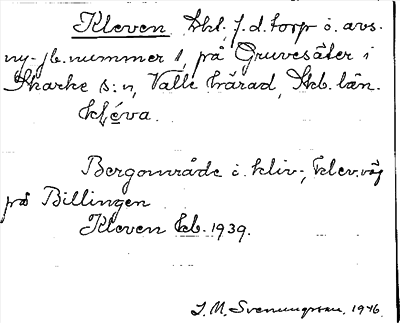 Kleven, f.d. torp o. avs.
ny-jb.nummer 1, på Gruvesäter i
Skarke s:n, Valle härad, Skb. län.
kléva.
Bergområde i. kliv-, klev.väg
på Billingen
Kleven kb. 1939.
J. M. Svenungsson, 1946.